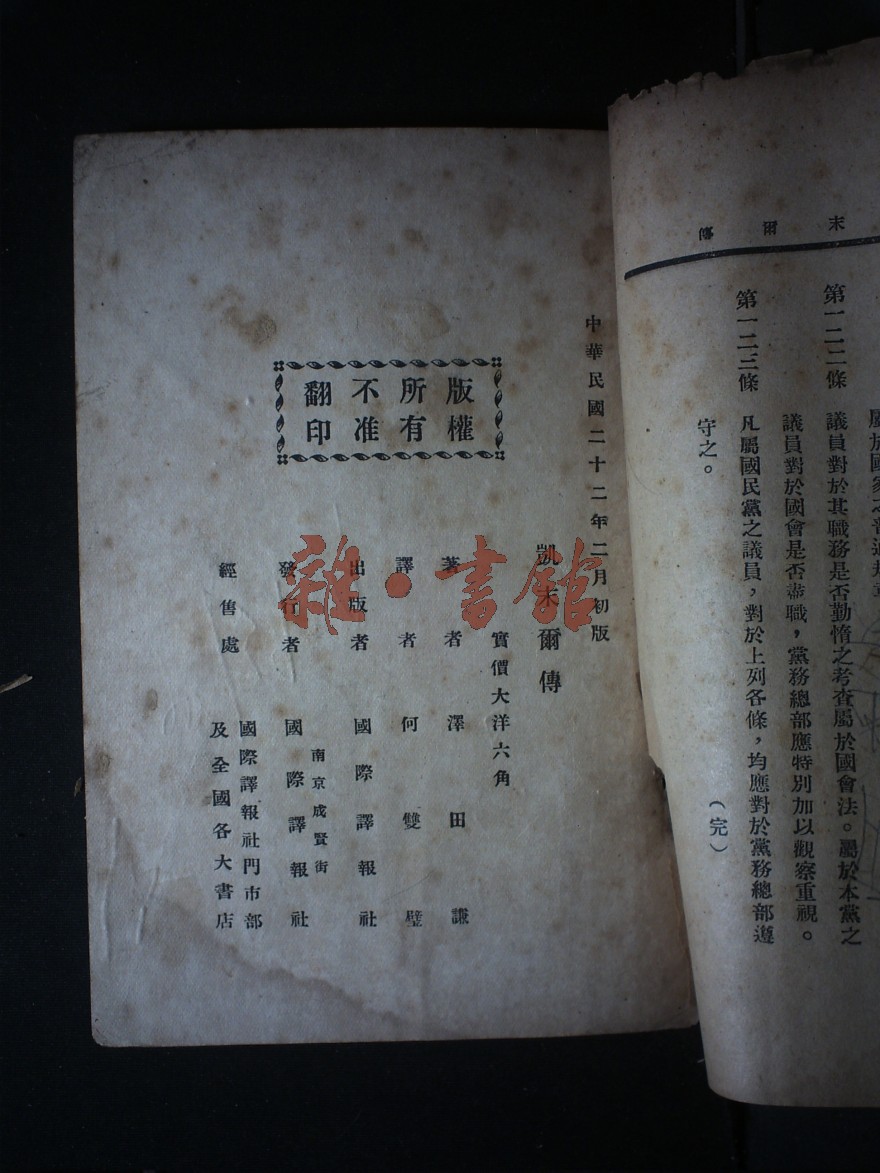 末爾傳
第一二二條 議員對於其職務是否勤惰之考查屬於國會法。屬於本黨之
議員對於國會是否盡職，黨務總部應特別加以觀察重視。
第一二三條 凡屬國民黨之議員，對於上列各條，均應對於黨務總部遵
守之。
（完）
中華民國二十二年二月初版
凱末爾傳
實價大洋六角
著者 澤田謙
譯者 何雙璧
出版者 國際譯報社
南京成賢街
發行者 國際譯報社
經售處 國際譯報社門市部
及全國各大書店
版權
所有
不准
翻印
雜·書館